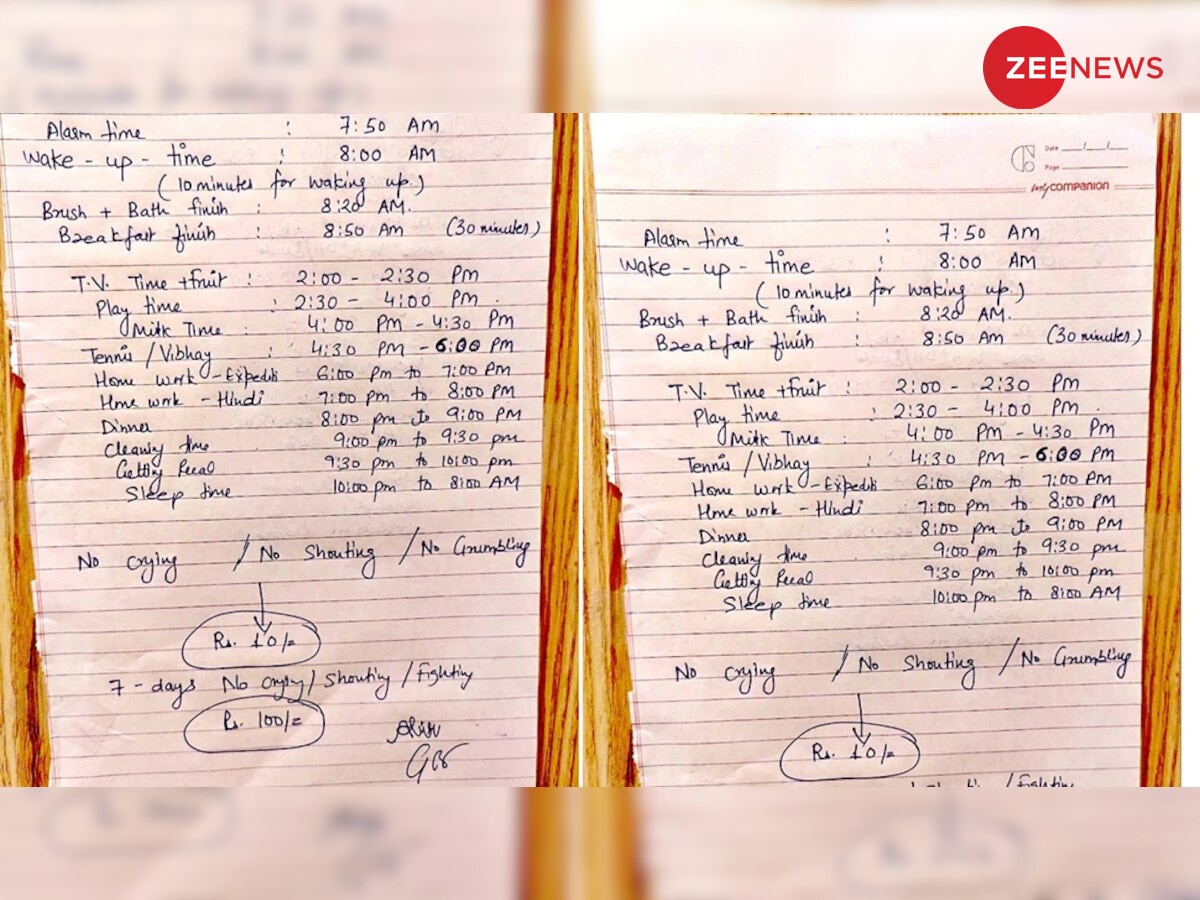 ZEENEWS
Alarm time : 7:50 AM
Wake - up - time : 8:00 AM
(10 minutes for waking up.)
Brush + Bath finish : 8:20 AM.
Breakfast finish : 8:50 AM (30 minutes)
T.V. Time +fruit : 2:00 - 2:30 PM
Play time : 2:30 - 4:00 PM .
Milk Time : 4:00 PM - 4:30 PM
Tennis / Vibhay : 4:30 PM - 6:00 PM
Home work - Expediti 6:00 Pm to 7:00 AM
Home work - Hindi 7:00 pm to 8:00 PM
Dinner 8:00 pm to 9:00 PM
Cleaning time 9:00 pm to 9:30 pm
9:30 pm to 10:00 pm
Sleep time 10:00 pm to 8:00 AM
No Crying / No Shouting / No Grumbling
Rs. 10/=
7 - days No Crying / Shouting / Fighting
Rs. 100/=
Date / /
Page
mycompanion
Alarm time : 7:50 AM
Wake - up - time : 8:00 AM
(10 minutes for waking up.)
Brush + Bath finish : 8:20 AM.
Breakfast finish : 8:50 AM (30 minutes)
T.V. Time +fruit : 2:00 - 2:30 PM
Play time : 2:30 - 4:00 PM .
Milk Time : 4:00 PM - 4:30 PM
Tennis / Vibhay : 4:30 PM - 6:00 PM
Home work - Expediti 6:00 Pm to 7:00 AM
Home work - Hindi 7:00 pm to 8:00 PM
Dinner 8:00 pm to 9:00 PM
Cleaning time 9:00 pm to 9:30 pm
9:30 pm to 10:00 pm
Sleep time 10:00 pm to 8:00 AM
No Crying / No Shouting / No Grumbling
Rs. 10/=